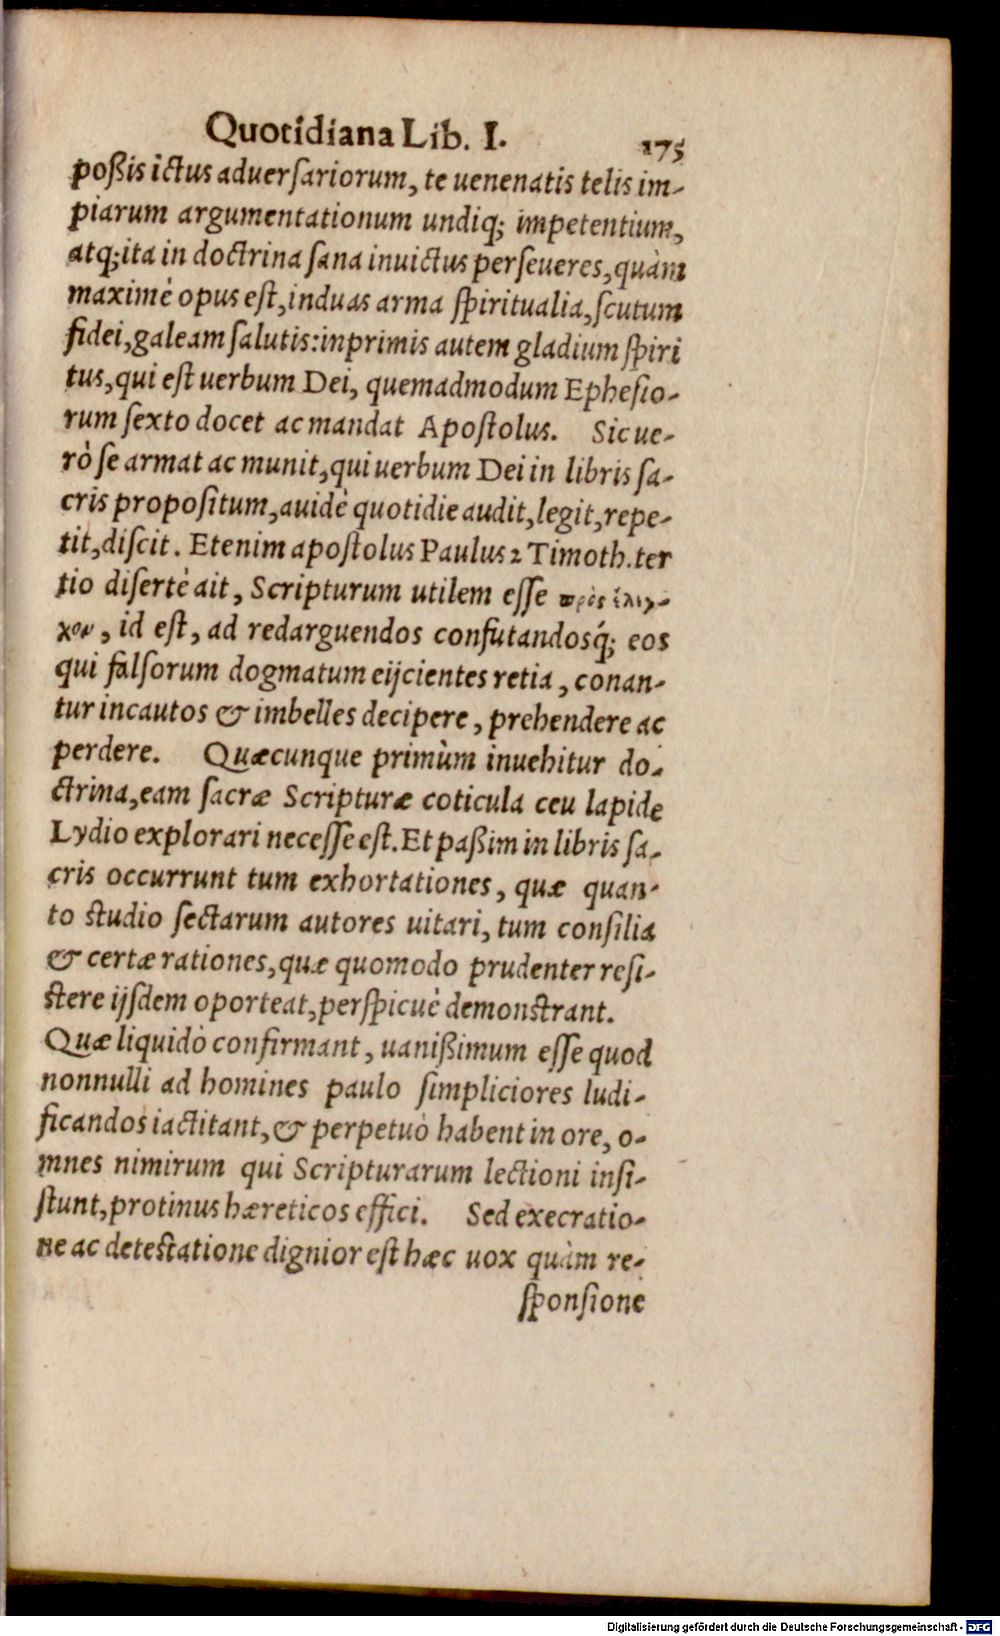 Quotidiana Lib. I. 175
poßis ictus aduerſariorum, te uenenatis telis im-
piarum argumentationum undiq; impetentium,
atq; ita in doctrina ſana inuictus perſeueres, quàm
maximè opus eſt, induas arma ſpiritualia, ſcutum
fidei, galeam ſalutis: inprimis autem gladium ſpiri
tus, qui eſt uerbum Dei, quemadmodum Epheſio-
rum ſexto docet ac mandat Apoſtolus. Sic ue-
rò ſe armat ac munit, qui uerbum Dei in libris ſa-
cris propoſitum, auidè quotidie audit, legit, repe-
tit, diſcit. Etenim apoſtolus Paulus 2 Timoth. ter
tio diſertè ait, Scripturum utilem eſſe πρὸς ἔλεγ-
χον, id eſt, ad redarguendos confutandosq́; eos
qui falſorum dogmatum eijcientes retia, conan-
tur incautos & imbelles decipere, prehendere ac
perdere. Quæcunque primùm inuehitur do-
ctrina, eam ſacræ Scripturæ coticula ceu lapide
Lydio explorari neceſſe eſt. Et paßim in libris ſa-
cris occurrunt tum exhortationes, quæ quan-
to ſtudio ſectarum autores uitari, tum conſilia
& certæ rationes, quæ quomodo prudenter reſi-
ſtere ijſdem oporteat, perſpicuè demonſtrant.
Quæ liquidò confirmant, uanißimum eſſe quod
nonnulli ad homines paulo ſimpliciores ludi-
ficandos iactitant, & perpetuò habent in ore, o-
mnes nimirum qui Scripturarum lectioni inſi-
ſtunt, protinus hæreticos effici. Sed execratio-
ne ac deteſtatione dignior eſt hæc uox quàm re-
ſponſione
Digitalisierung gefördert durch die Deutsche Forschungsgemeinschaft - DFG